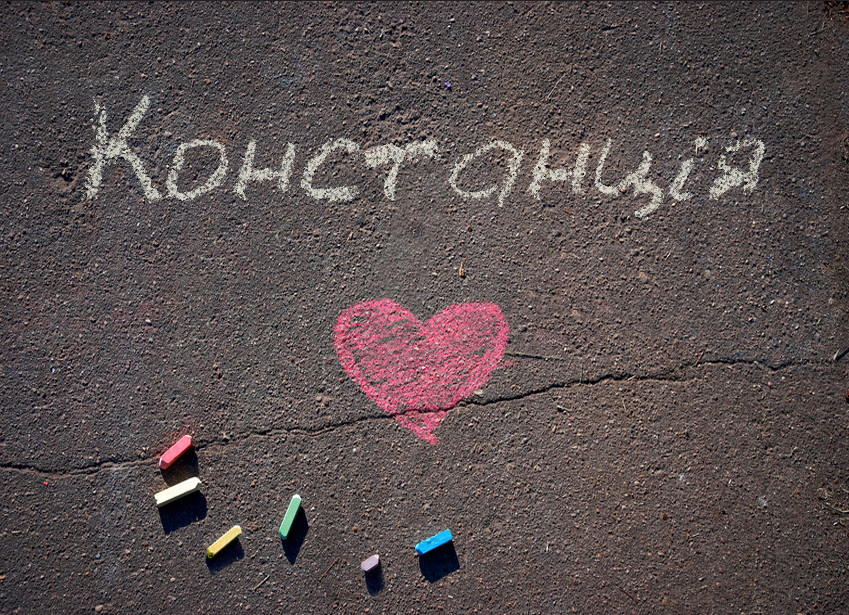 Констанція